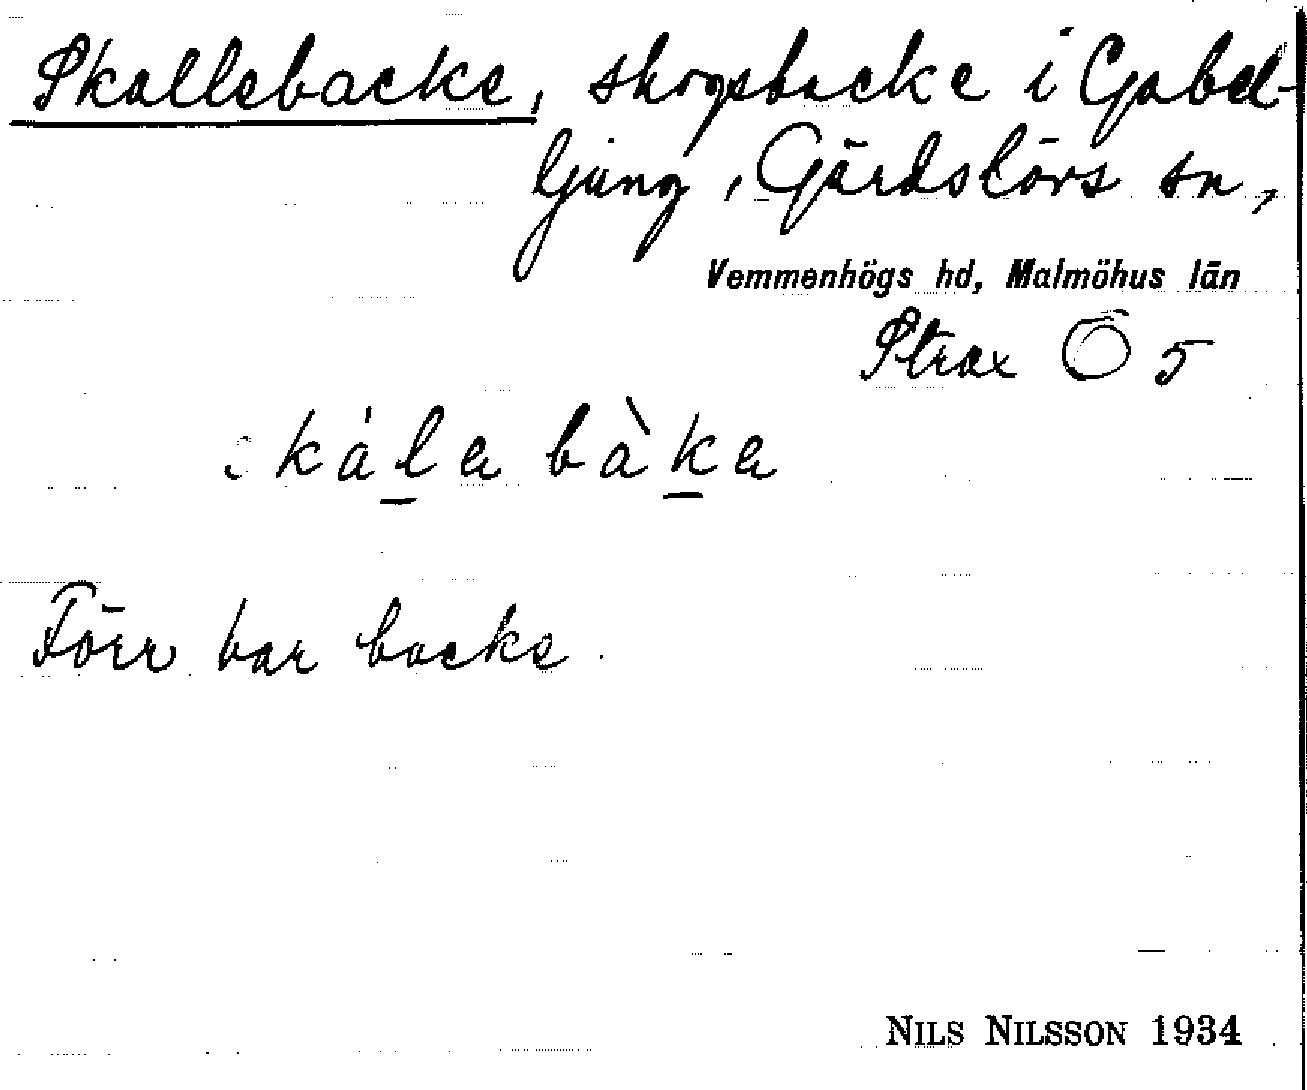 Skallebacke, skogsbacke i Gabel-
ljung, Gärdslövs sn,
Vemmenhögs hd, Malmöhus län
Strax Ö 5
skàla bàka
Förr bar backe.
NILS NILSSON 1934